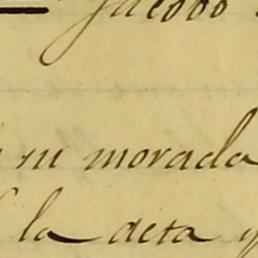 Jacobo
su morada
la deta y